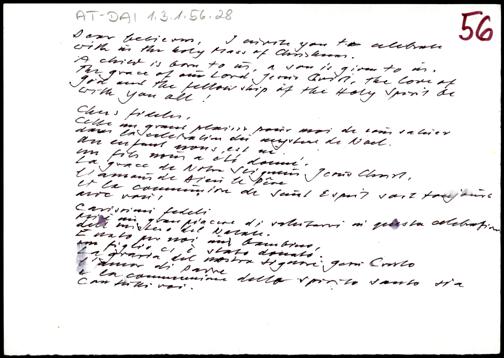 AT-DAI 1.3.1.56.28
56
Dear believers, I invite you to celebrate
with in the holy Mass of Christmas.
A child is born to us, a son is given to us.
The grace of our Lord Jesus Christ, the love of
God and the fellowship of the Holy Spirit be
with you all!
Chers fideles,
C'est un grand plaisir pour moi de vous saluer
dans la celebration du mystere de Noel.
Un enfant nous est né
un fils nous a été donné.
La grace de Notre Seigneur Jesus Christ,
L'amour de Dieu le Père
et la communion de Saint Esprit soit toujours
avec vous!
Carissimi fedeli
un gran piacere di salutarvi in questa celebrazione
del mistero del Natale.
È nato per noi un bambino,
un figlio ci è stato donato.
La grazia del nostro Signore Gesù Cristo
l'amor di Padre
e la communione dello spirito santo sia
con tutti voi.